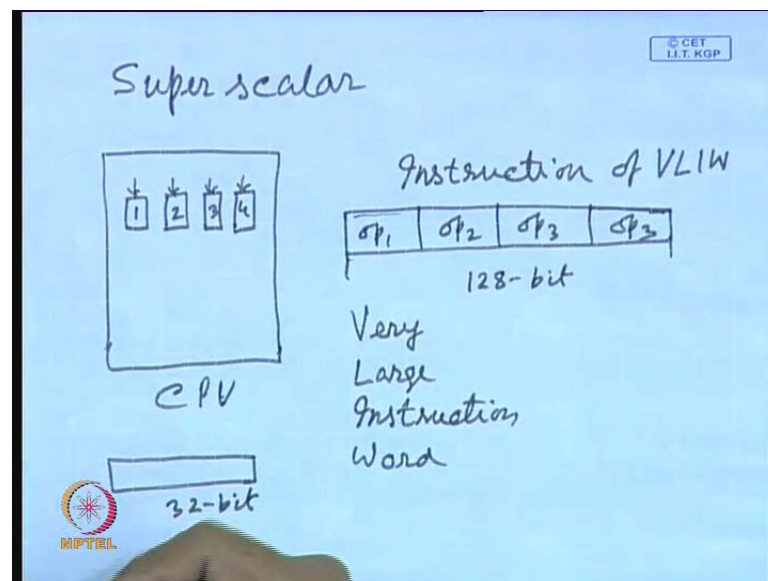 © CET
I.I.T. KGP
Super scalar
1 2 3 4
CPU
32-bit
Instruction of VLIW
op1 op2 op3 op3
128-bit
Very
Large
Instruction
Word
NPTEL